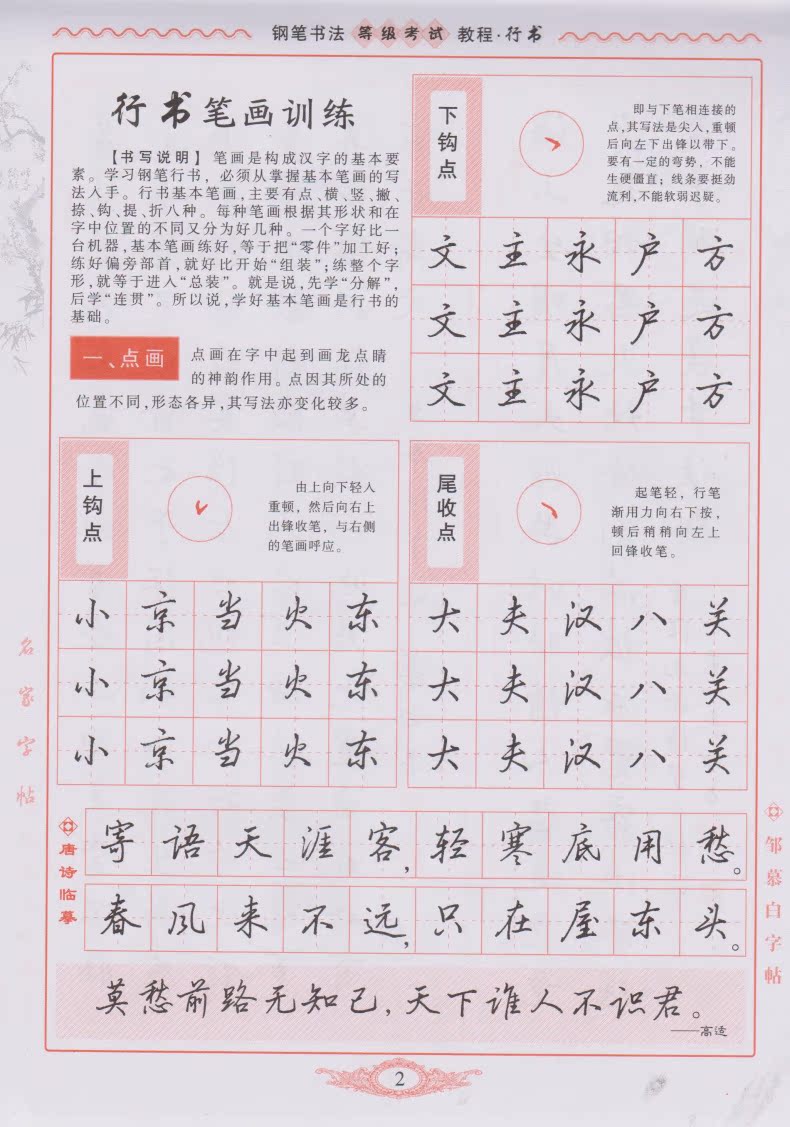 钢笔书法 等级考试 教程·行书
行书笔画训练
【书写说明】 笔画是构成汉字的基本要
素。学习钢笔行书，必须从掌握基本笔画的写
法入手。行书基本笔画，主要有点、横、竖、撇、
捺、钩、提、折八种。每种笔画根据其形状和在
字中位置的不同又分为好几种。一个字好比一
台机器，基本笔画练好，等于把“零件”加工好；
练好偏旁部首，就好比开始“组装”；练整个字
形，就等于进入“总装”。就是说，先学“分解”，
后学“连贯”。所以说，学好基本笔画是行书的
基础。
一、点画
点画在字中起到画龙点睛
的神韵作用。点因其所处的
位置不同，形态各异，其写法亦变化较多。
下钩点
即与下笔相连接的
点，其写法是尖入，重顿
后向左下出锋以带下。
要有一定的弯势，不能
生硬僵直；线条要挺劲
流利，不能软弱迟疑。
文 主 永 户 方
文 主 永 户 方
文 主 永 户 方
上钩点
由上向下轻入
重顿，然后向右上
出锋收笔，与右侧
的笔画呼应。
小 京 当 火 东
小 京 当 火 东
小 京 当 火 东
尾收点
起笔轻，行笔
渐用力向右下按，
顿后稍稍向左上
回锋收笔。
大 夫 汉 八 关
大 夫 汉 八 关
大 夫 汉 八 关
唐诗临摹
寄语天涯客，轻寒底用愁。
春风来不远，只在屋东头。
莫愁前路无知己，天下谁人不识君。
——高适
名家字帖
邹慕白字帖
2